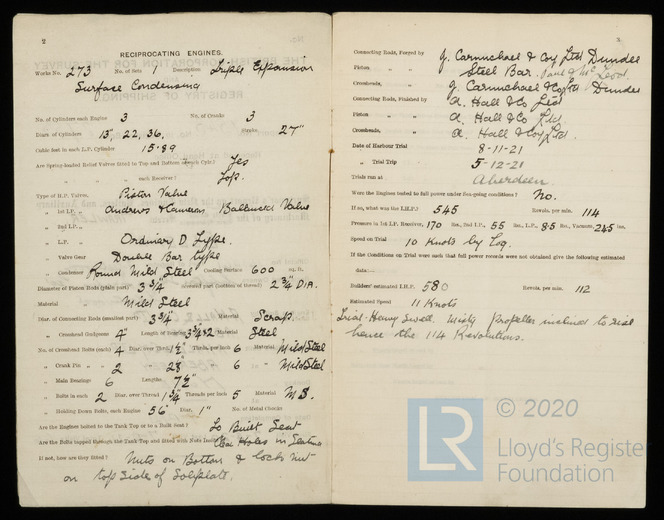 2
RECIPROCATING ENGINES.
Works No. 273 No. of Sets 1 Description Triple Expansion
Surface Condensing
No. of Cylinders each Engine 3 No. of Cranks 3
Diars. of Cylinders 13, 22, 36, Stroke 27"
Cubic feet in each L.P. Cylinder 15.89
Are Spring-loaded Relief Valves fitted to Top and Bottom of each Cylr.? Yes
" " each Receiver? Top.
Type of H.P. Valves, Piston Valve
" 1st I.P. " Andrews & Cameron Balanced Valve
" 2nd I.P. "
" L.P. " Ordinary D Type.
" Valve Gear Double Bar type
" Condenser Round Mild Steel Cooling Surface 600 sq. ft.
Diameter of Piston Rods (plain part) 3 3/4" Screwed part (bottom of thread) 2 3/4 DIA.
Material Mild Steel
Diar. of Connecting Rods (smallest part) 3 3/4" Material Scrap.
" Crosshead Gudgeons 4" Length of Bearing 3 3/4 x 2 Material Steel
No. of Crosshead Bolts (each) 4 Diar. over Thrd. 1 1/2" Thrds. per inch 6 Material Mild Steel
" Crank Pin " " 2 " " 6 " Mild Steel
" Main Bearings 6 Lengths 7 1/2"
" Bolts in each 2 Diar. over Thread 1 3/4" Threads per inch 5 Material M S.
" Holding Down Bolts, each Engine 56 Diar. 1" No. of Metal Chocks
Are the Engines bolted to the Tank Top or to a Built Seat? To Built Seat
Are the Bolts tapped through the Tank Top and fitted with Nuts Inside? Clear Holes in Seating
If not, how are they fitted? Nuts on Bottom & lock Nut
on top Side of Soleplate.
3.
Connecting Rods, Forged by J. Carmichael & Coy Ltd Dundee
Piston " " Steel Bar.
Crossheads, " " J. Carmichael & Co Ltd Dundee
Connecting Rods, Finished by A. Hall & Co Ltd
Piston " " A. Hall & Co Ltd.
Crossheads, " " A. Hall & Coy Ltd.
Date of Harbour Trial 8-11-21
" Trial Trip 5-12-21
Trials run at Aberdeen
Were the Engines tested to full power under Sea-going conditions? No.
If so, what was the I.H.P.? 545 Revols. per min. 114
Pressure in 1st I.P. Receiver, 170 lbs., 2nd I.P., 55 lbs., L.P., 8.5 lbs., Vacuum, 24.5 ins.
Speed on Trial 10 Knots by Log.
If the Conditions on Trial were such that full power records were not obtained give the following estimated
data:—
Builders' estimated I.H.P. 580 Revols. per min. 112
Estimated Speed 11 Knots
Trial-Heavy Swell, Misty propeller inclined to rise
hence the 114 Revolutions.
LR
© 2020
Lloyd's Register
Foundation